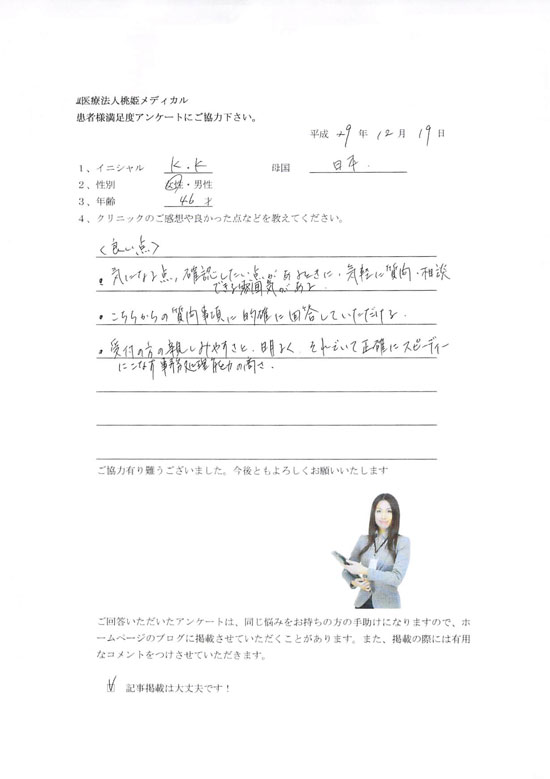 医療法人桃姫メディカル
患者様満足度アンケートにご協力下さい。
平成 29 年 12 月 19 日
1、イニシャル K.K 母国 日本.
2、性別 女性・男性
3、年齢 46 才
4、クリニックのご感想や良かった点などを教えてください。
<良い点>
・気になる点,確認したい点があるときに、気軽に質問・相談
できる雰囲気がある.
・こちらからの質問事項に的確に回答していただける.
・受付の方の親しみやすさと、明るく、それでいて正確にスピーディー
にこなす事務処理能力の高さ.
ご協力有り難うございました。今後ともよろしくお願いいたします
ご回答いただいたアンケートは、同じ悩みをお持ちの方の手助けになりますので、ホ
ームページのブログに掲載させていただくことがあります。また、掲載の際には有用
なコメントをつけさせていただきます。
☑ 記事掲載は大丈夫です！